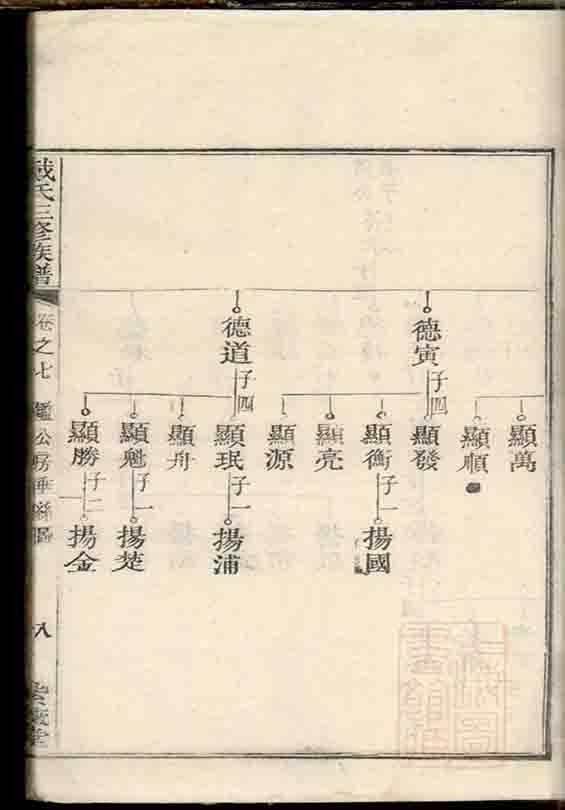 德寅
子四
德道
子四
顯萬
顯順
顯發
顯衡
子一
顯亮
顯源
顯珉
子一
顯舟
顯魁
子一
顯勝
子二
揚國
揚浦
揚楚
揚金
戴氏三修族譜
卷之七
鑑公房垂絲圖
八